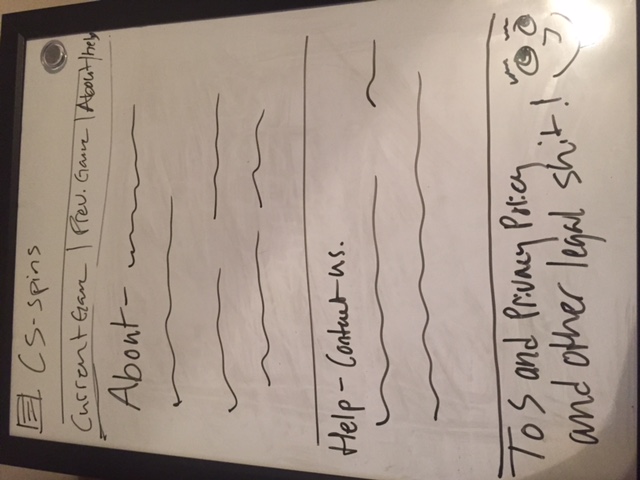 CS-spins
Current Game | Prev. Game | About/help
About-
Help - Contact us.
ToS and Privacy Policy
and other legal shit!